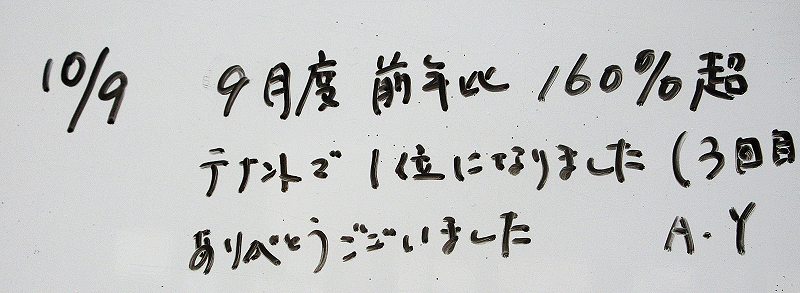 10/9 9月度 前年比 160%超
テナントで 1位になりました (3回目
ありがとうございました A.Y